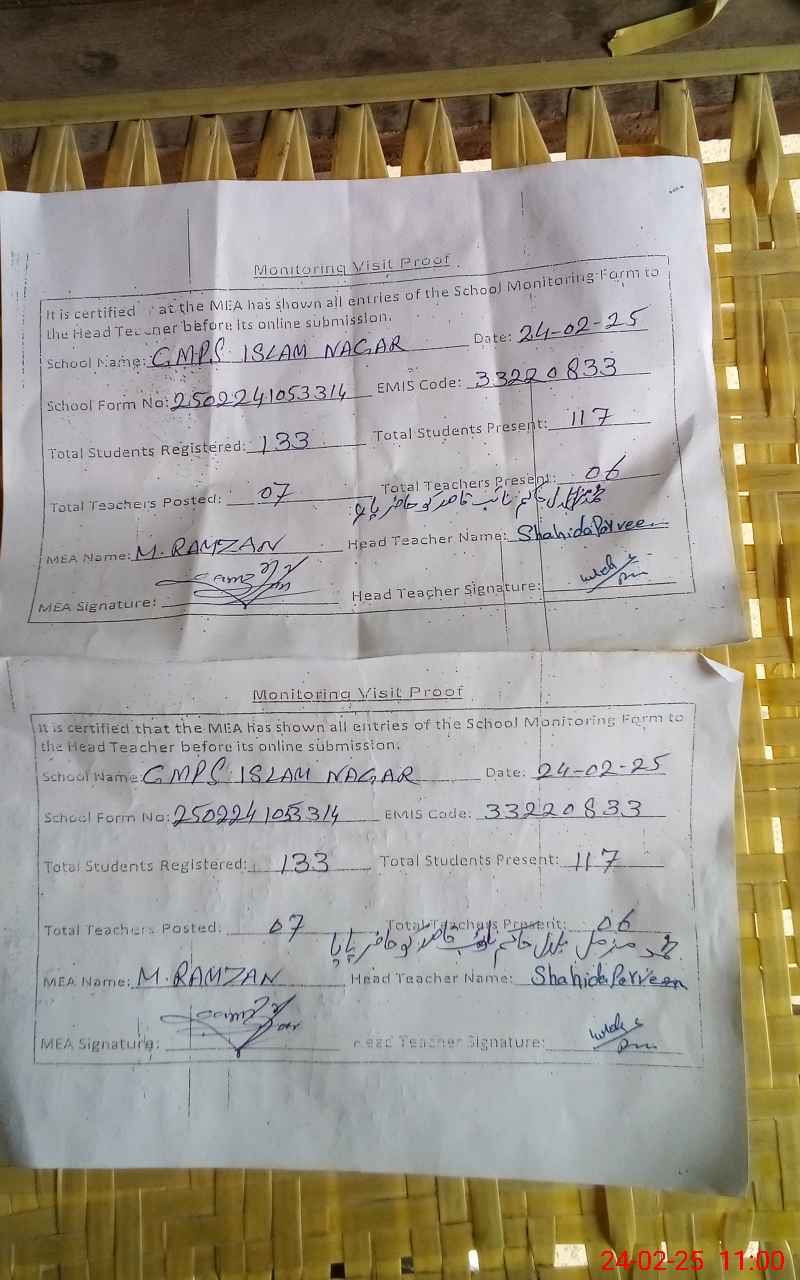 Monitoring Visit Proof
It is certified at the MEA has shown all entries of the School Monitoring Form to
the Head Teacher before its online submission.
School Name: GMPS ISLAM NAGAR Date: 24-02-25
School Form No: 2502241053314 EMIS Code: 33220833
Total Students Registered: 133 Total Students Present: 117
Total Teachers Posted: 07 Total Teachers Present: 06
نائب قاصد کو حاضر پایا
MEA Name: M. RAMZAN Head Teacher Name: Shahida Parveen
MEA Signature: Head Teacher Signature:
Monitoring Visit Proof
It is certified that the MEA has shown all entries of the School Monitoring Form to
the Head Teacher before its online submission.
School Name GMPS ISLAM NAGAR Date: 24-02-25
School Form No: 2502241053314 EMIS Code: 33220833
Total Students Registered: 133 Total Students Present: 117
Total Teachers Posted: 07 Total Teachers Present: 06
نائب قاصد کو حاضر پایا
MEA Name: M. RAMZAN Head Teacher Name: Shahida Parveen
MEA Signature: Head Teacher Signature:
24-02-25 11:00